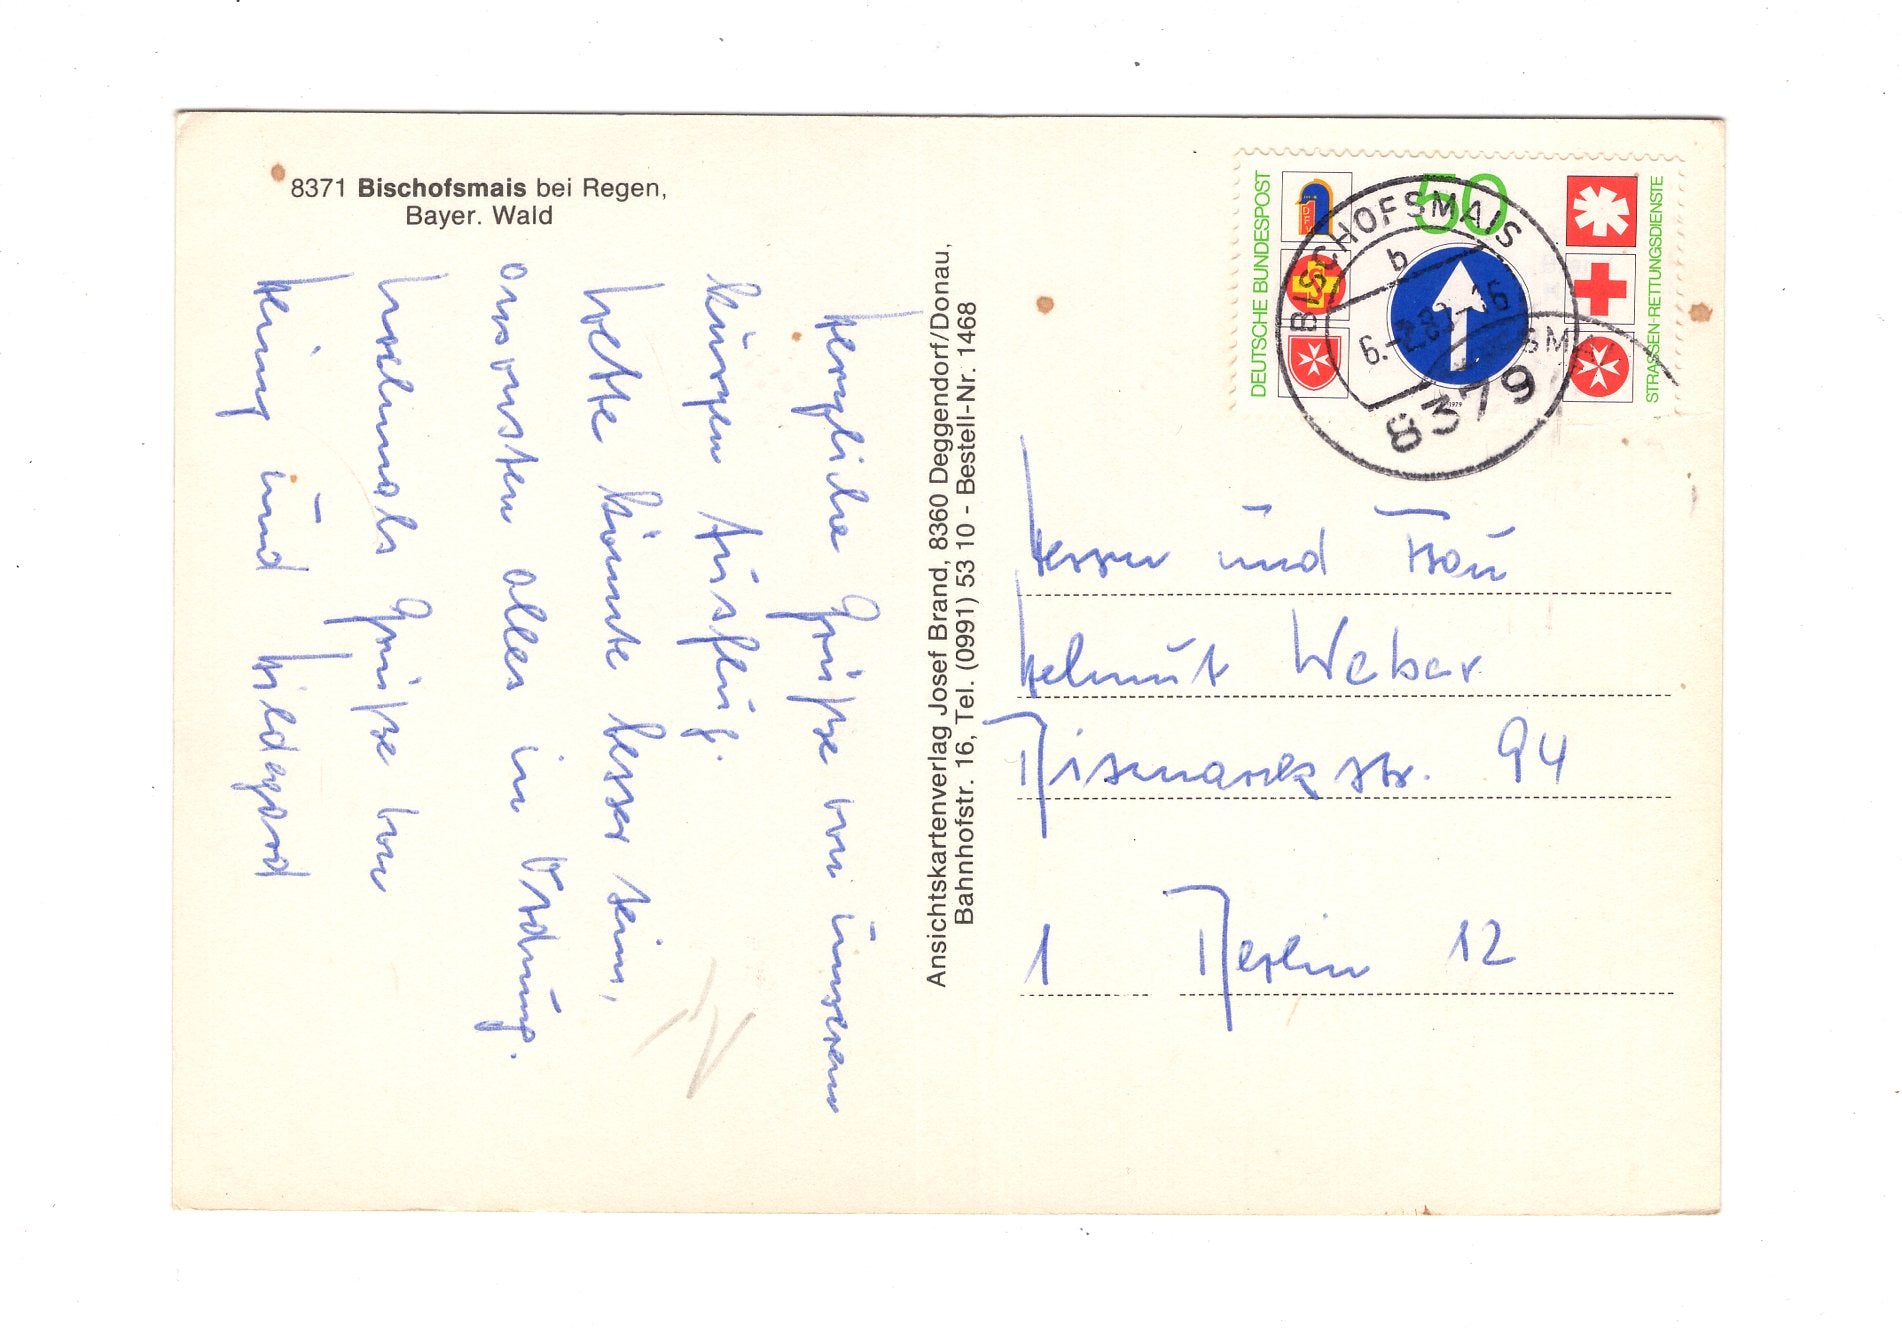 8371 Bischofsmais bei Regen,
Bayer. Wald
Herzliche Grüße von unserem
kurzen Ausflug.
Wette könnte besser sein,
ansonsten alles in Ordnung.
Nochmals Grüße von
Heinz und Hildegard
Ansichtskartenverlag Josef Brand, 8360 Deggendorf/Donau,
Bahnhofstr. 16, Tel. (0991) 53 10 - Bestell-Nr. 1468
DEUTSCHE BUNDESPOST
50
STRASSEN-RETTUNGSDIENSTE
1979
BISCHOFSMAIS
b
8379
Herrn und Frau
Helmut Weber
Bismarckstr. 94
1 Berlin 12